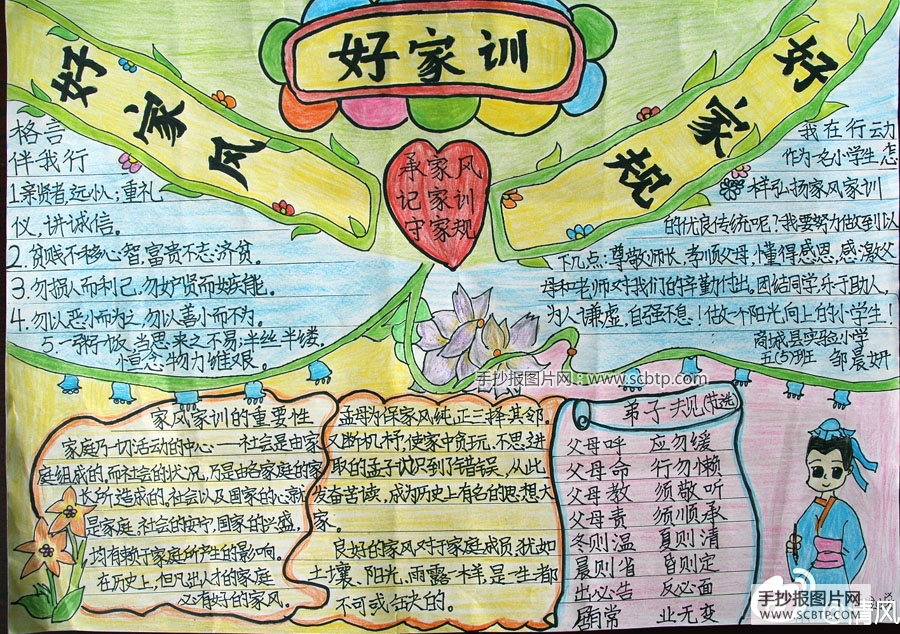 好家训
好家风
好家规
承家风
记家训
守家规
格言
伴我行
1.亲贤者,远小人;重礼
仪,讲诚信。
2.贫贱不移心智,富贵不忘济贫。
3.勿损人而利己,勿妒贤而嫉能。
4.勿以恶小而为之,勿以善小而不为。
5.一粥一饭,当思来之不易;半丝半缕,
恒念物力维艰。
我在行动
作为一名小学生怎
样弘扬家风家训
的优良传统呢?我要努力做到以
下几点:尊敬师长,孝顺父母,懂得感恩,感激父
母和老师对我们的辛勤付出。团结同学乐于助人,
为人谦虚,自强不息!做一个阳光向上的小学生!
商城县实验小学
五(5)班 邹晨妍
手抄报图片网:www.scbtp.com
家风家训的重要性
家庭乃一切活动的中心——社会是由家
庭组成的,而社会的状况,乃是由各家庭的家
长所造成的。社会以及国家的心就
是家庭,社会的安宁,国家的兴盛,
均有赖于家庭所产生的影响。
在历史上,但凡出人才的家庭
必有好的家风。
孟母为保家风纯正三择其邻。
又断机杼,使家中贪玩,不思进
取的孟子认识到了错误,从此
发奋苦读,成为历史上有名的思想大
家。
良好的家风对于家庭成员,犹如
土壤、阳光、雨露一样,是一生都
不可或缺的。
弟子规(节选)
父母呼 应勿缓
父母命 行勿懒
父母教 须敬听
父母责 须顺承
冬则温 夏则凊
晨则省 昏则定
出必告 反必面
居有常 业无变
手抄报图片网
WWW.SCBTP.COM
清风